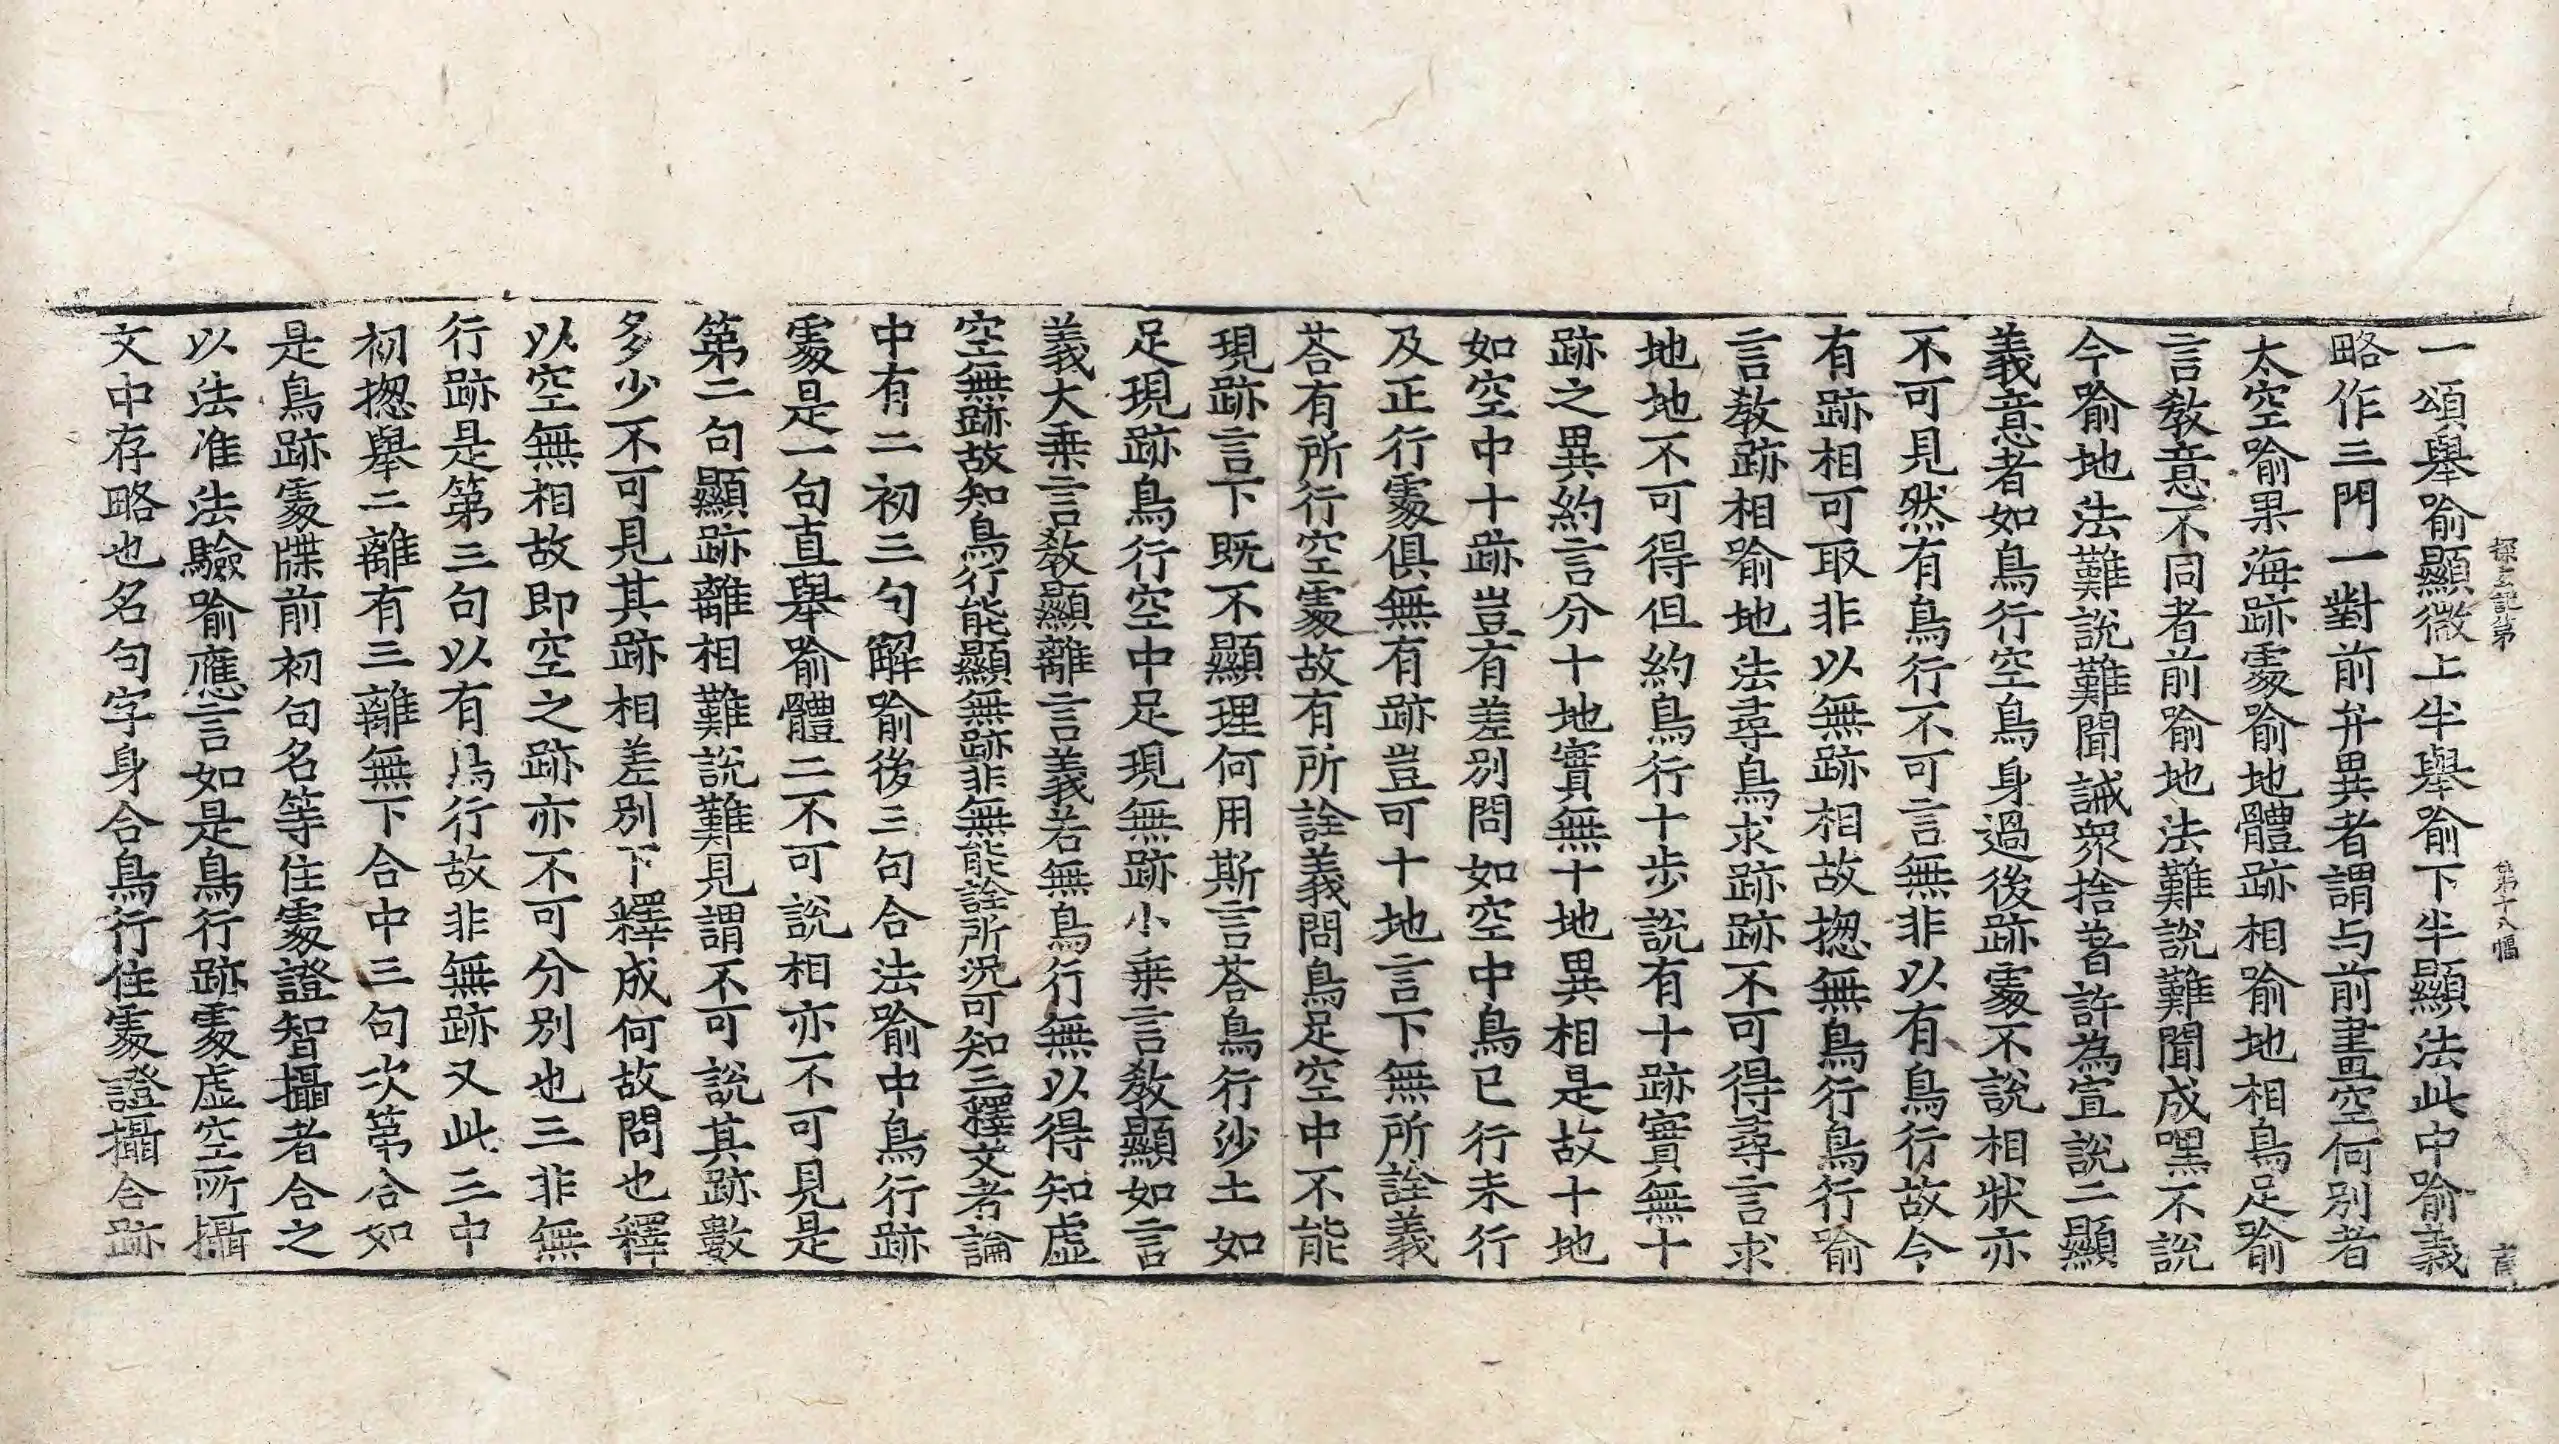 探玄記第
第十八幅
一頌舉喻顯微上半舉喻下半顯法此中喻義
略作三門一對前弁異者謂与前畫空何別者
太空喻果海跡處喻地體跡相喻地相鳥足喻
言教意不同者前喻地法難說難聞成嘿不說
今喻地法難說難聞誡衆捨著許為宣說二顯
義意者如鳥行空鳥身過後跡處不說相狀亦
不可見然有鳥行不可言無非以有鳥行故令
有跡相可取非以無跡相故揔無鳥行鳥行喻
言教跡相喻地法尋鳥求跡跡不可得尋言求
地地不可得但約鳥行十步說有十跡實無十
跡之異約言分十地實無十地異相是故十地
如空中十跡豈有差別問如空中鳥已行未行
及正行處俱無有跡豈可十地言下無所詮義
荅有所行空處故有所詮義問鳥足空中不能
現跡言下既不顯理何用斯言荅鳥行沙土如
足現跡鳥行空中足現無跡小乗言教顯如言
義大乗言教顯離言義若無鳥行無以得知虛
空無跡故知鳥行能顯無跡非無能詮所況可知三釋文者論
中有二初三句解喻後三句合法喻中鳥行跡
處是一句直舉喻體二不可說相亦不可見是
第二句顯跡離相難說難見謂不可說其跡數
多少不可見其跡相差別下釋成何故問也釋
以空無相故即空之跡亦不可分別也三非無
行跡是第三句以有鳥行故非無跡又此三中
初揔舉二離有三離無下合中三句次第合如
是鳥跡處牒前初句名等住處證智攝者合之
以法准法驗喻應言如是鳥行跡處虛空所攝
文中存略也名句字身合鳥行住處證攝合跡